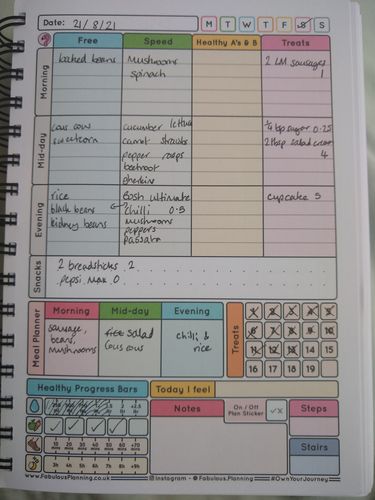 Date: 21/8/21 M T W T F S S
Free Speed Healthy A's & B Treats
Morning
baked beans Mushrooms 2 LM sausages
spinach 1
Mid-day
cous cous cucumber lettuce ¼ tsp sugar 0.25
sweetcorn carrot 2 tbsp salad cream
pepper 4
beetroot
gherkin
Evening
rice Cosh ultimate cupcake 5
black beans chilli 0.5
kidney beans mushrooms
peppers
passata
Snacks
2 breadsticks 2
pepsi max 0
Meal Planner Morning Mid-day Evening Treats
sausage, salad chilli &
beans, cous cous rice
mushrooms
1 2 3 4 5
6 7 8 9 10
11 12 13 14 15
16 17 18 19 20
Healthy Progress Bars Today I feel
Notes On / Off Plan Sticker Steps
Stairs
10 mins 20 mins 30 mins 40 mins 50 mins 60 mins +70 mins
3h 4h 5h 6h 7h 8h +9h
www.FabulousPlanning.co.uk Instagram - @Fabulous.Planning #OwnYourJourney